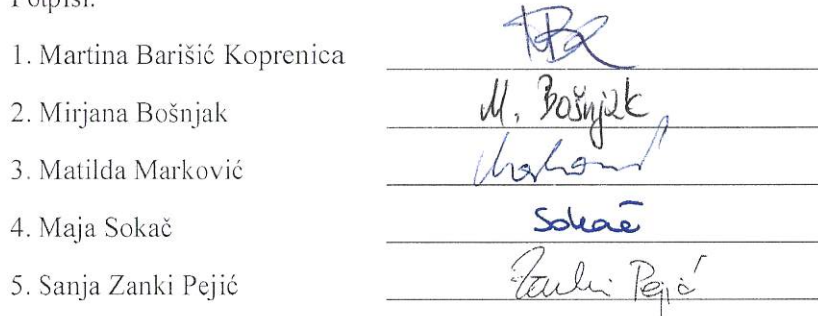 Potpisi:
1. Martina Barišić Koprenica MBK
2. Mirjana Bošnjak M. Bošnjak
3. Matilda Marković Marković
4. Maja Sokač Sokač
5. Sanja Zanki Pejić Zanki Pejić